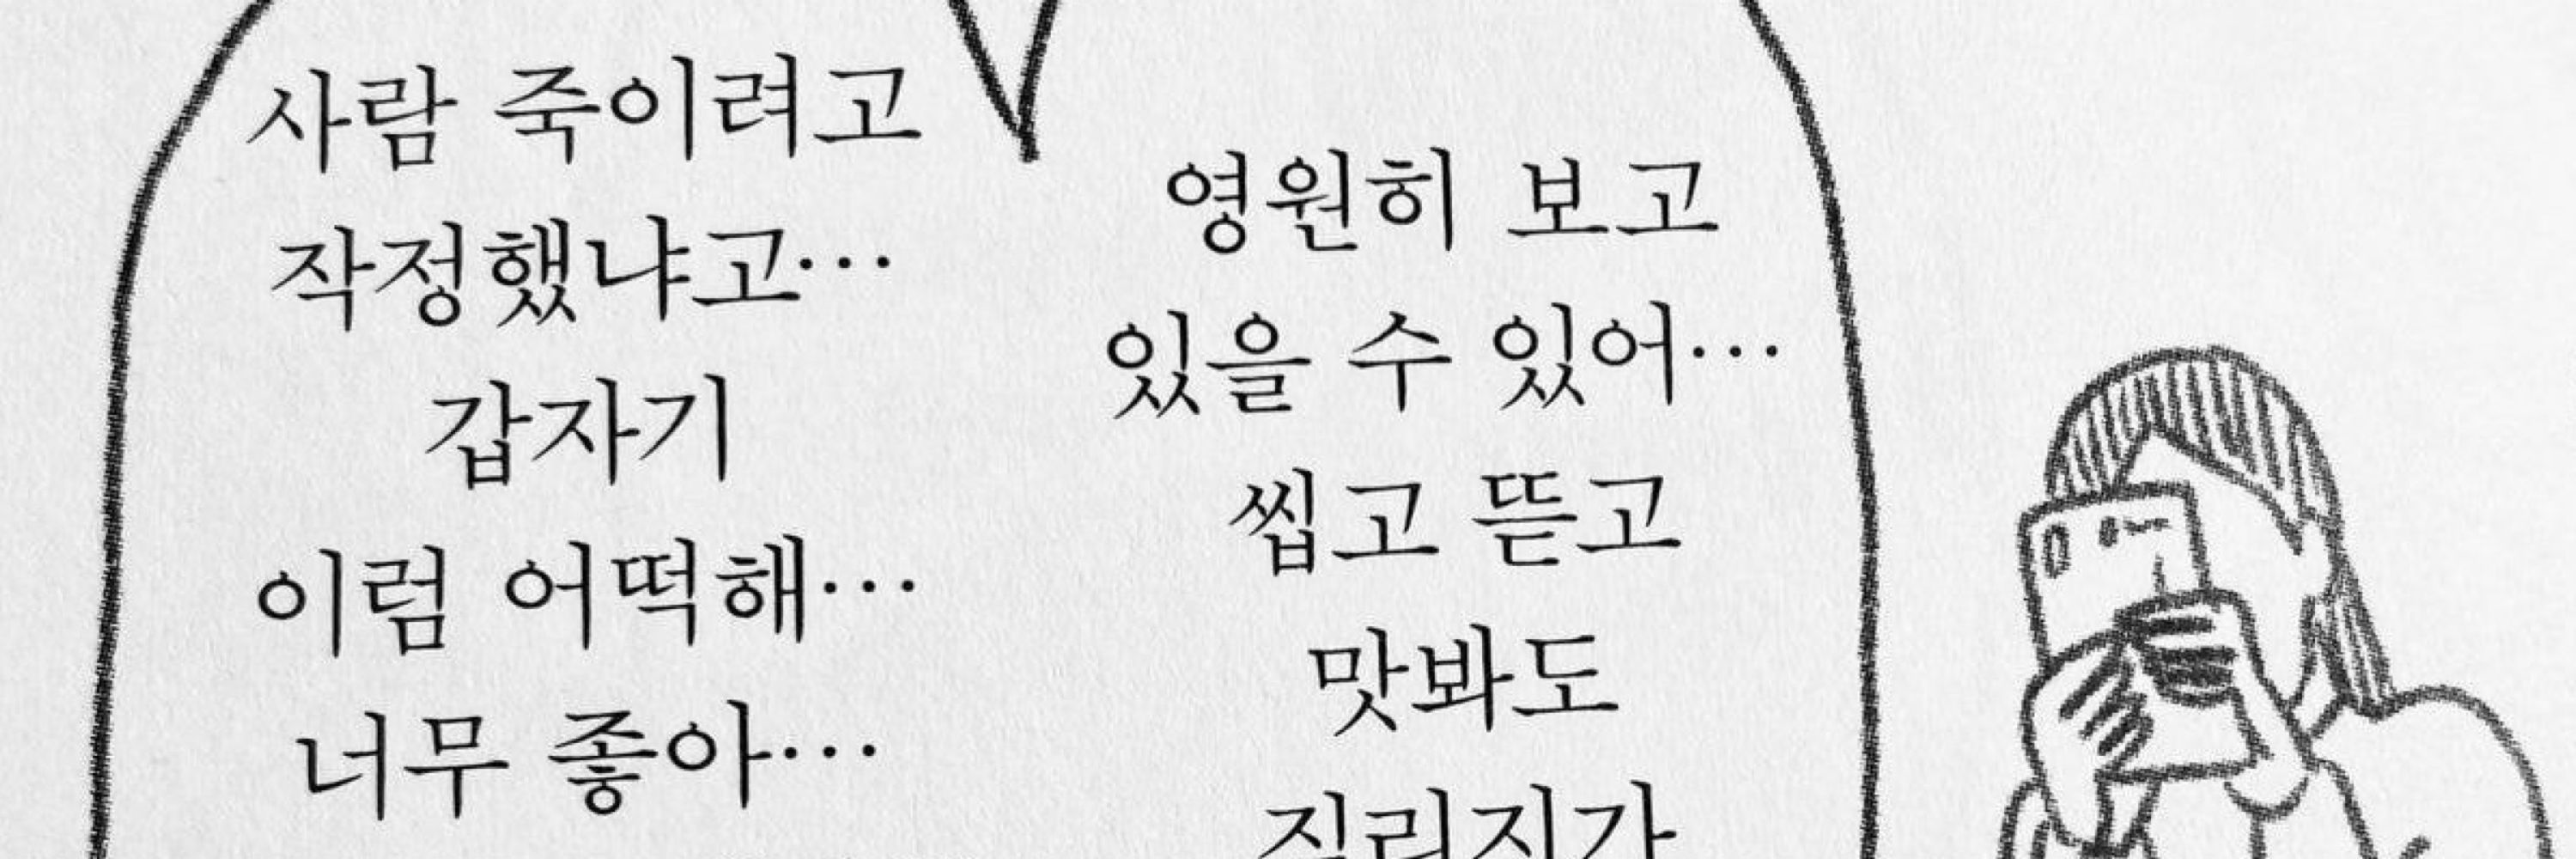 사람 죽이려고
작정했냐고…
갑자기
이럼 어떡해…
너무 좋아…
영원히 보고
있을 수 있어…
씹고 뜯고
맛봐도
질리지가